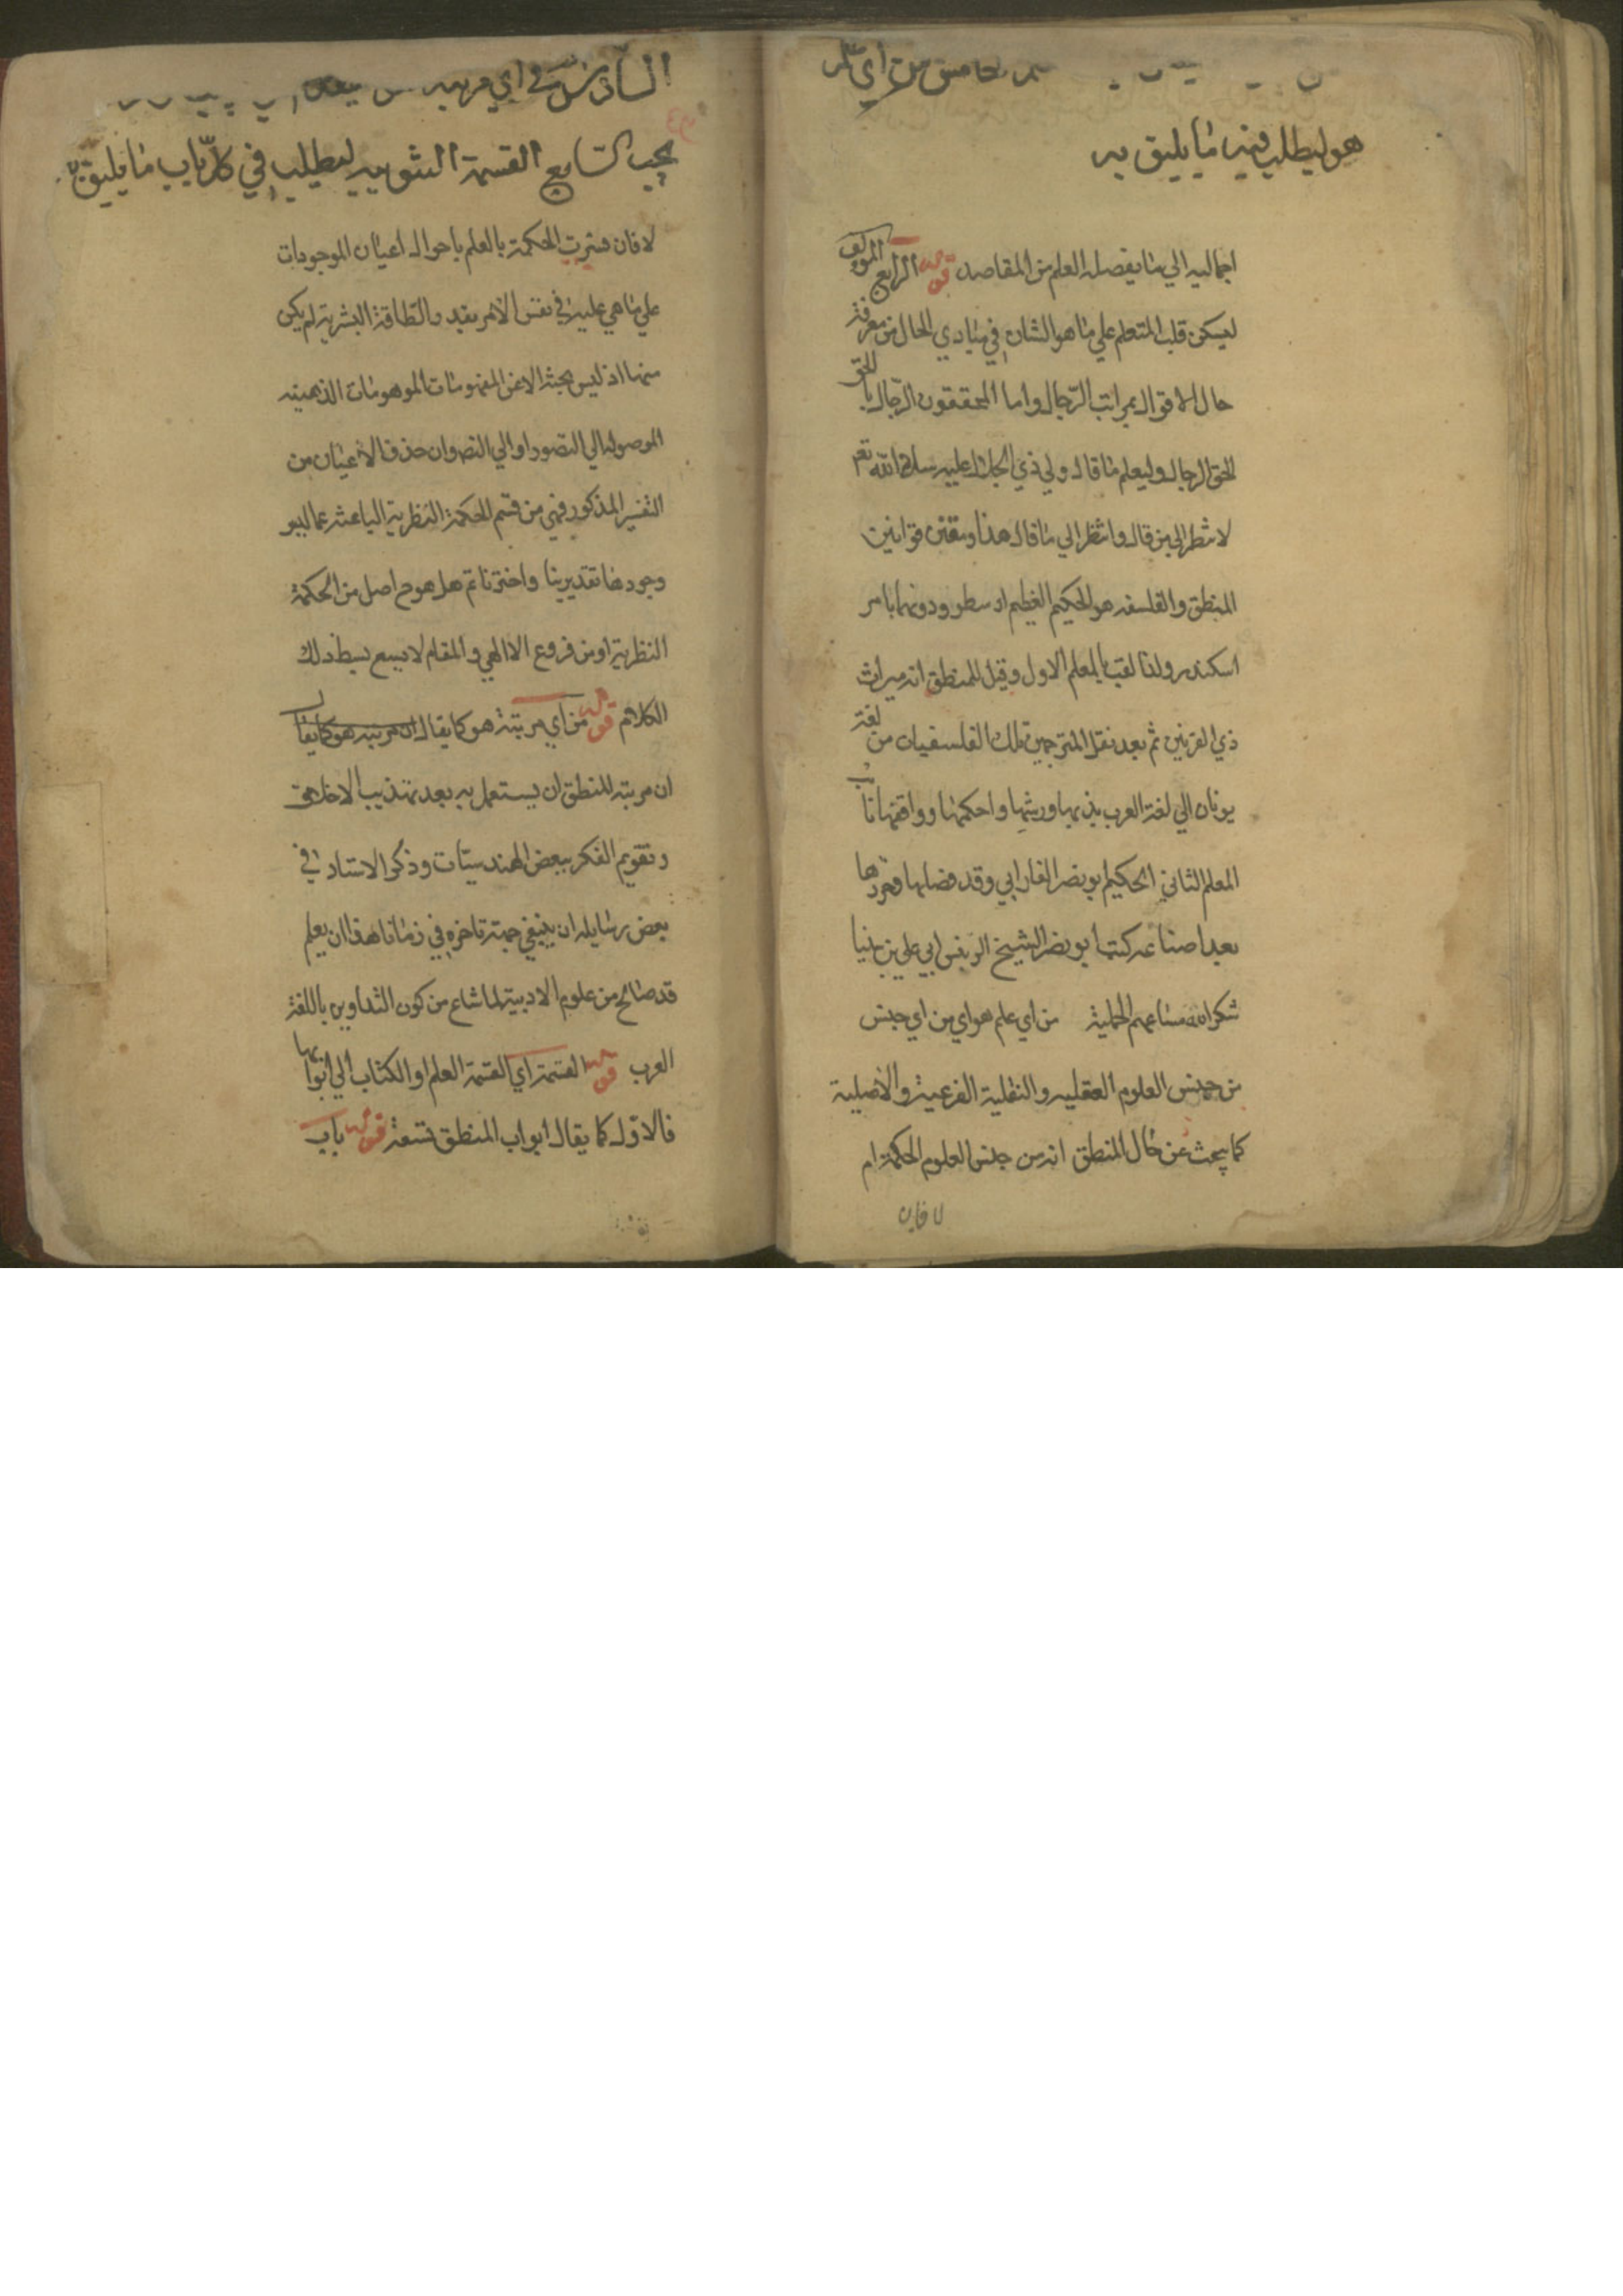 الخامس من اي علم
هو ليطلب فيه ما يليق به
اجماليه الي ما يفصله العلم من المقاصد قوله الرابع المولف
ليسكن قلب المتعلم علي ما هو الشان في مبادي الحال من معرفة
حال الاقوال بمراتب الرجال واما المحققون الرجال بالحق
لا الحق الرجال وليعلم ما قال ولي ذي الجلال عليه سلام الله تعم
لا تنظر الي من قال وانظر الي ما قال هذا ومقنن قوانين
المنطق والفلسفه هو الحكيم العظيم ارسطو ودونها بامر
اسكندر ولذا لقب بالمعلم الاول وقيل للمنطق انه ميراث
ذي القرنين ثم بعد نقل المترجمين تلك الفلسفيات من لغة
يونان الي لغة العرب هذبها ورتبها واحكمها وواقفها ثانيا
المعلم الثاني الحكيم ابو نصر الفارابي وقد فصلها وحررها
بعد اضاعه كتب ابو نصر الشيخ الرئيس ابي علي بن سينا
شكر الله مساعيهم الجميلة من اي علم هو اي من اي جنس
من جنس العلوم العقليه والنقلية الفرعية والاصلية
كما يبحث عن حال المنطق انه من جنس العلوم الحكمة ام
لا فان
السادس في اي مرتبه
يجب السابع القسمة التبويبيه ليطلب في كل باب ما يليق به
لا فان فسرت الحكمة بالعلم باحوال اعيان الموجودات
علي ما هي عليه في نفس الامر بقدر الطاقة البشرية لم يكن
منها اذ ليس بحثه الا عن المفهومات الموهومات الذهنيه
الموصوله الي التصور او الي التص وان حذف الاعيان من
التفسير المذكور فهي من قسم الحكمة النظرية الباحثه عما ليس
وجودها بتقديرنا واختيارنا ثم هل هو ح اصل من الحكمة
النظرية او من فروع الاالهي والمقام لا يسع بسط ذلك
الكلام قوله من اي مرتبة هو كما يقال ان مرتبه هو كما يقال
ان مرتبه المنطق ان يستعمل به بعد تهذيب الاخلاق
وتقويم الفكر ببعض الهندسيات وذكر الاستاد في
بعض رسايله ان ينبغي جهة تاخره في زماننا هذا ان يعلم
قدر صالح من علوم الادبية لما شاع من كون التداوين باللغة
العرب قوله القسمة اي القسمة العلم او الكتاب الي ابوابها
فالاول كما يقال ابواب المنطق تسعة قوله باب